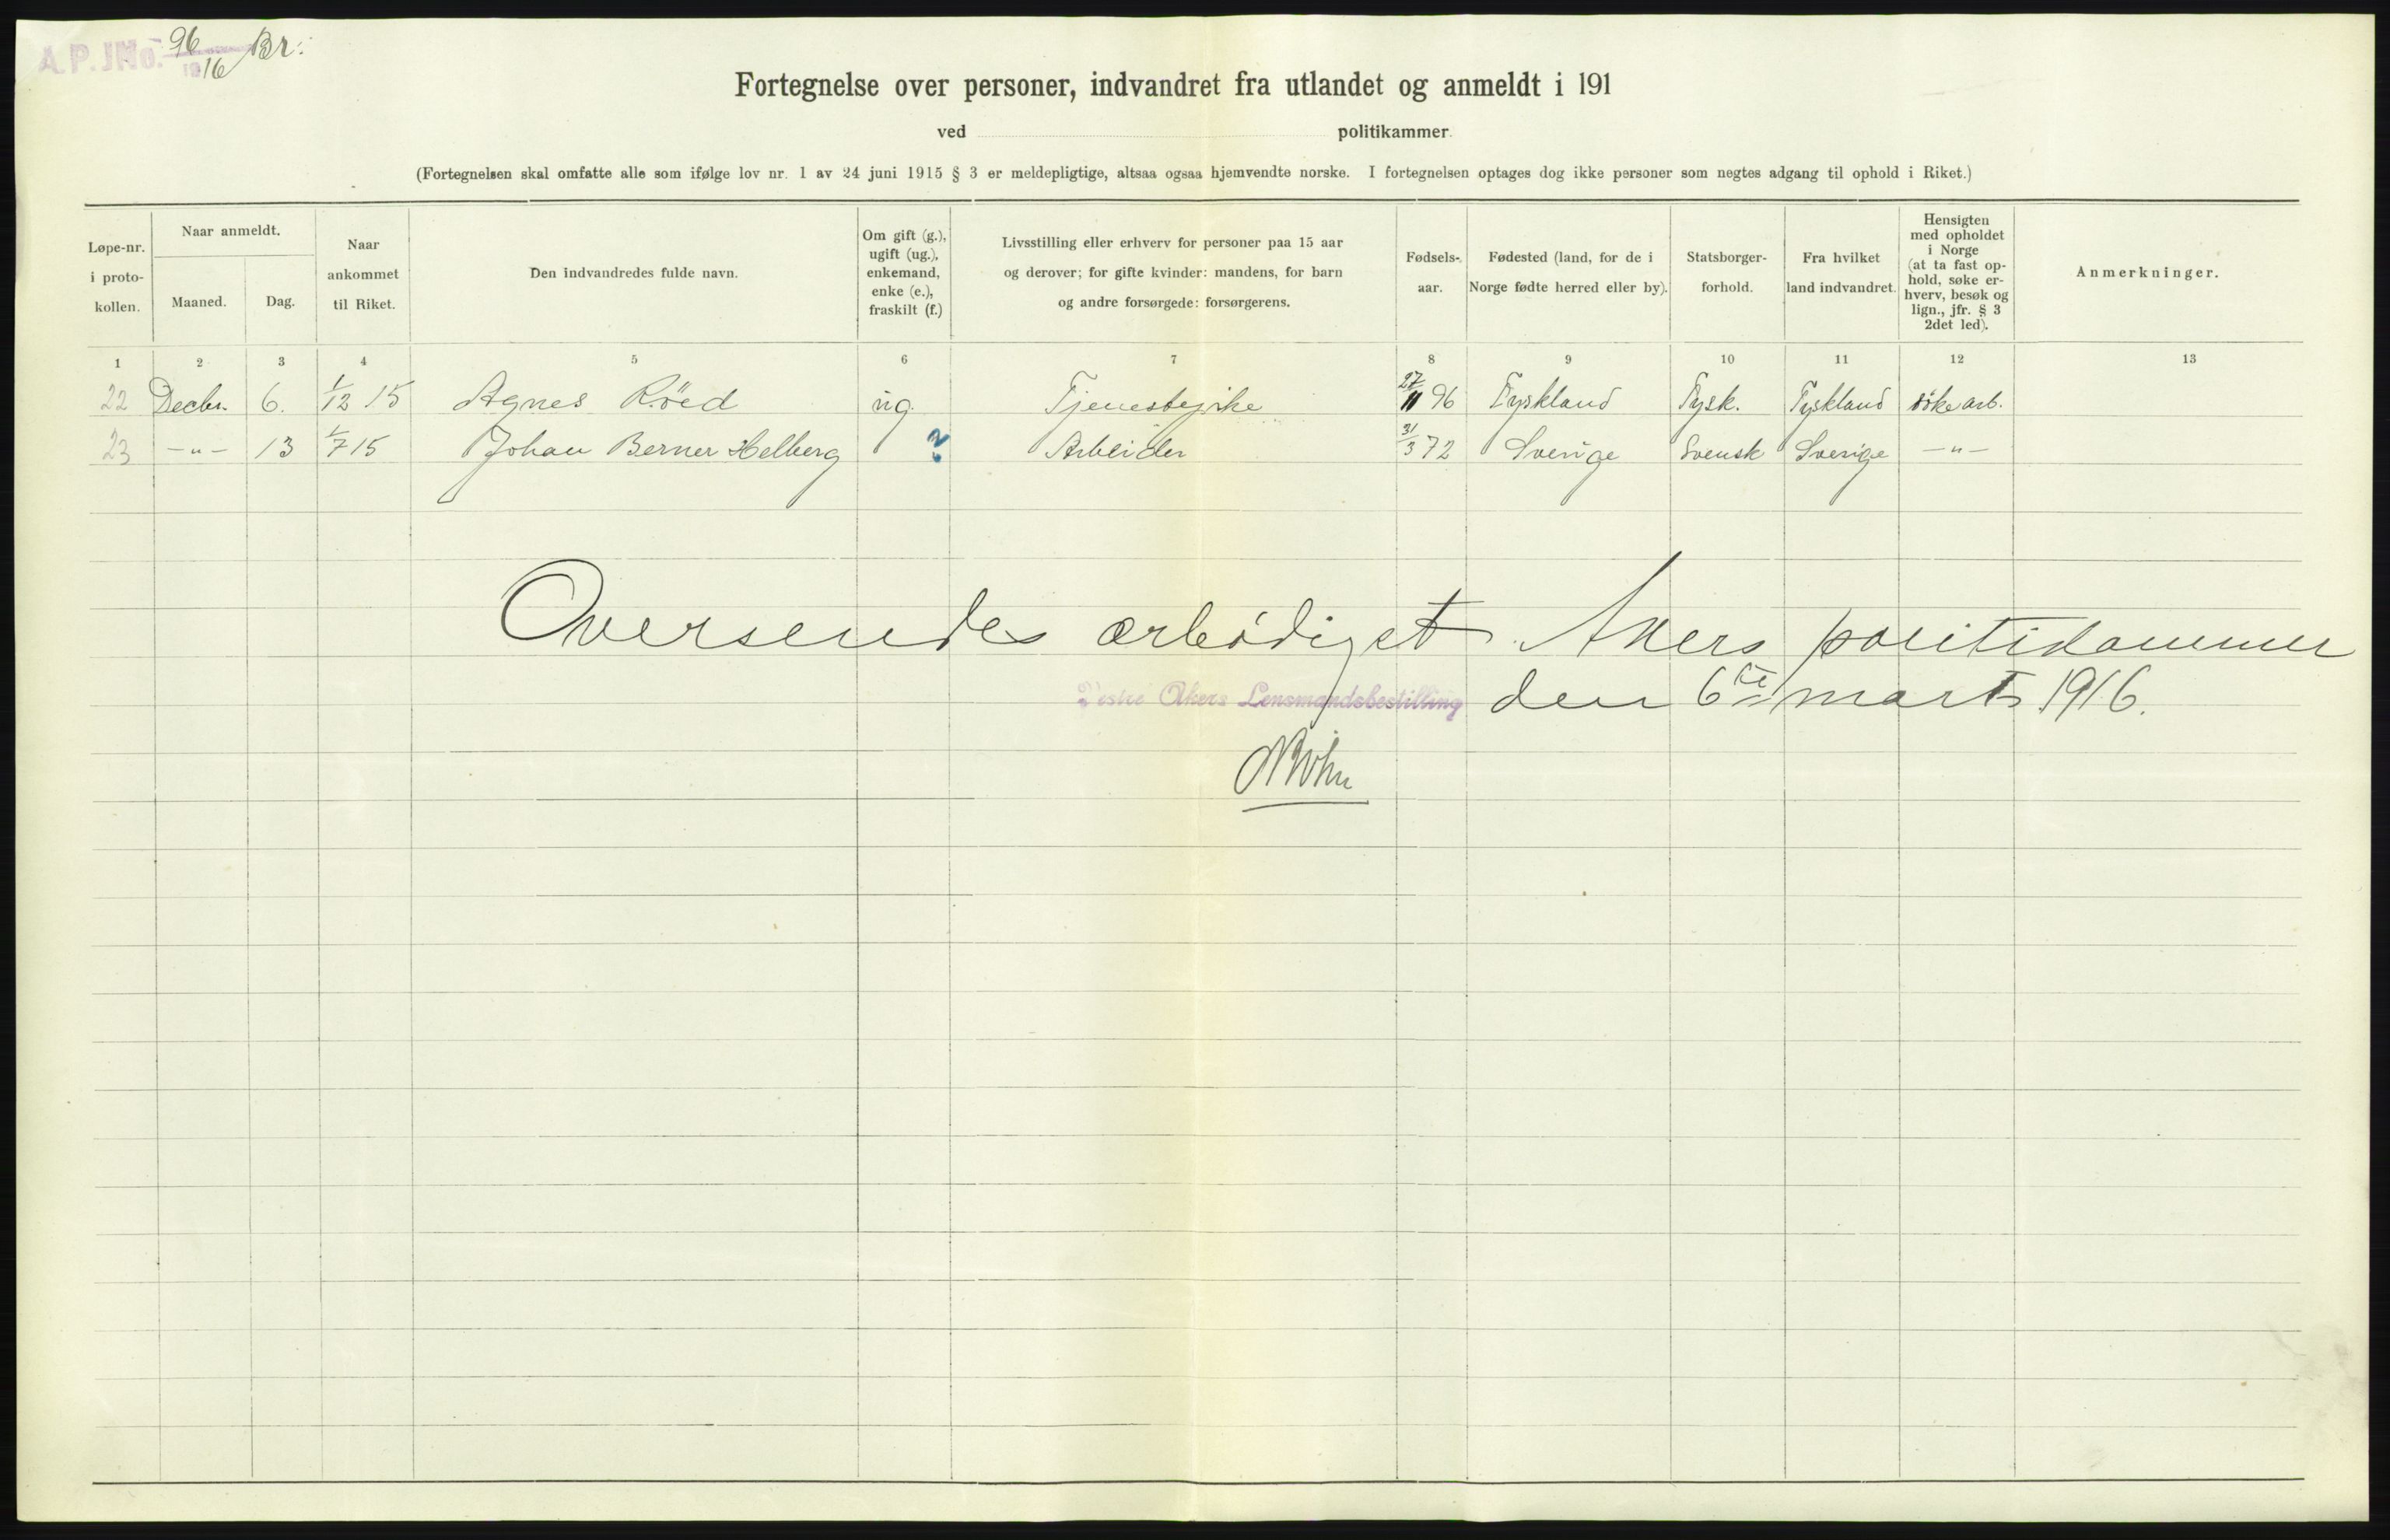 A.P. JNo. 96/1916 Br:
Fortegnelse over personer, indvandret fra utlandet og anmeldt i 191
ved politikammer.
(Fortegnelsen skal omfatte alle som ifølge lov nr. 1 av 24 juni 1915 § 3 er meldepligtige, altsaa ogsaa hjemvendte norske. I fortegnelsen optages dog ikke personer som negtes adgang til ophold i Riket.)
Løpe-nr. i proto-kollen.
Naar anmeldt.
Maaned.
Dag.
Naar ankommet til Riket.
Den indvandredes fulde navn.
Om gift (g.), ugift (ug.), enkemand, enke (e.), fraskilt (f.)
Livsstilling eller erhverv for personer paa 15 aar og derover; for gifte kvinder: mandens, for barn og andre forsørgede: forsørgerens.
Fødsels-aar.
Fødested (land, for de i Norge fødte herred eller by).
Statsborger-forhold.
Fra hvilket land indvandret.
Hensigten med opholdet i Norge (at ta fast op-hold, søke er-hverv, besøk og lign., jfr. § 3 2det led).
Anmerkninger.
1 2 3 4 5 6 7 8 9 10 11 12 13
22 Decbr. 6. 1/12 15 Agnes Röed ug. Tjenestepike 27/11 96 Tyskland Tysk. Tyskland söke arb.
23 -"- 13 1/7 15 Johan Berner Helberg ? Arbeider 31/3 72 Sverige Svensk Sverige -"-
Oversendes ærbødigst Akers politikammer
Vestre Akers Lensmandsbestilling den 6te marts 1916.